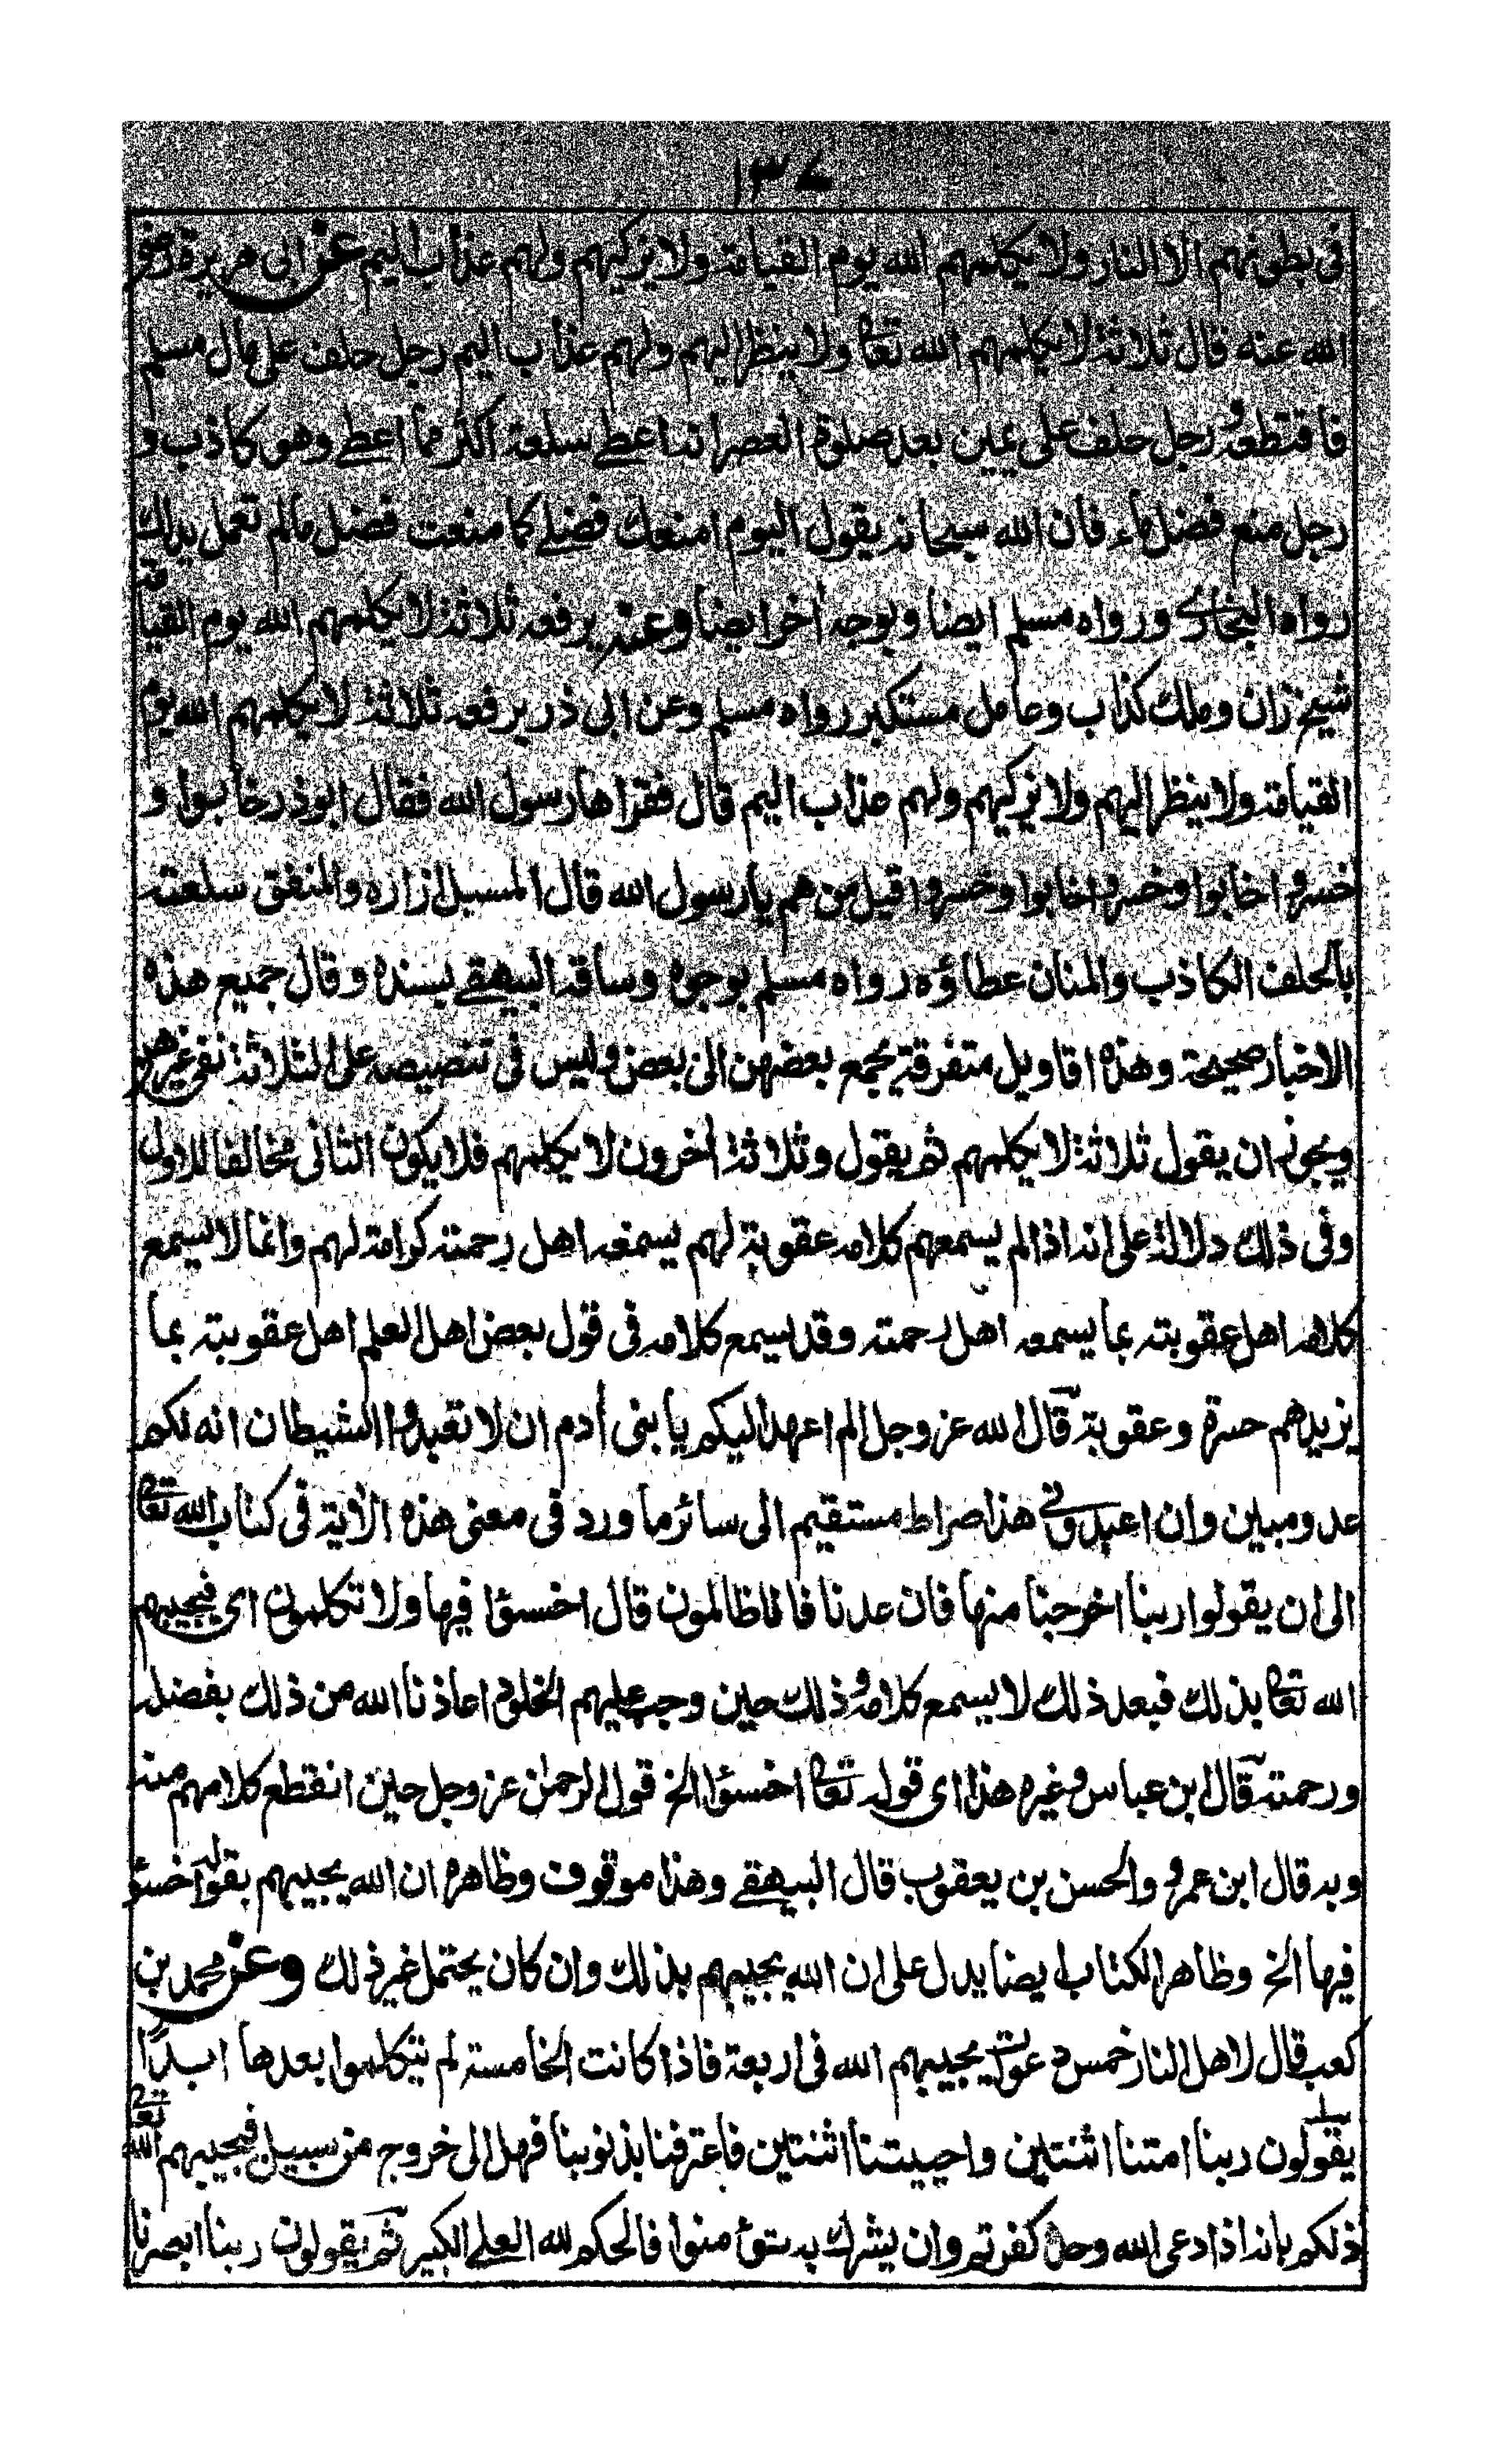 ١٣٧
فى بطونهم الا النار ولا يكلمهم الله يوم القيامة ولا يزكيهم ولهم عذاب اليم عن ابى هريرة رضى
الله عنه قال ثلاثة لا يكلمهم الله تعالى ولا ينظر اليهم ولهم عذاب اليم رجل حلف على مال مسلم
فاقتطعه ورجل حلف على يمين بعد صلوة العصر انه اعطى سلعة اكثر مما اعطى وهو كاذب و
رجل منع فضل ماء فان الله سبحانه يقول اليوم امنعك فضلى كما منعت فضل مالم تعمل يداك
رواه البخارى ورواه مسلم ايضا وبوجه اخر ايضا وعنه يرفعه ثلاثة لا يكلمهم الله يوم القيامة
شيخ زان وملك كذاب وعامل مستكبر رواه مسلم وعن ابى ذر يرفعه ثلاثة لا يكلمهم الله يوم
القيامة ولا ينظر اليهم ولا يزكيهم ولهم عذاب اليم قال فقراها رسول الله فقال ابوذر خابوا و
خسروا خابوا وخسروا خابوا وخسروا قيل من هم يا رسول الله قال المسبل ازاره والمنفق سلعته
بالحلف الكاذب والمنان عطاؤه رواه مسلم بوجوه وساقه البيهقى بسنده وقال جميع هذه
الاخبار صحيحة وهذه اقاويل متفرقة يجمع بعضهن الى بعض وليس فى تنصيصه على الثلاثة نفى غيرهن
ويجوز ان يقول ثلاثة لا يكلمهم ثم يقول وثلاثة أخرون لا يكلمهم فلا يكون الثانى مخالفا للاول
وفى ذلك دلالة على انه اذا لم يسمعهم كلامه عقوبة لهم يسمعه اهل رحمته كرامة لهم وانما لا يسمع
كلامه اهل عقوبته بما يسمعه اهل رحمته وقد يسمع كلامه فى قول بعض اهل العلم اهل عقوبته بما
يزيدهم حسرة وعقوبة قال الله عز وجل الم اعهد اليكم يا بنى أدم ان لا تعبدوا الشيطان انه لكم
عدو مبين وان اعبدونى هذا صراط مستقيم الى سائر ما ورد فى معنى هذه الأية فى كتاب الله تعالى
الى ان يقولوا ربنا اخرجنا منها فان عدنا فانا ظالمون قال اخسؤا فيها ولا تكلمون اى فيجيبهم
الله تعالى بذلك فبعد ذلك لا يسمع كلامه وذلك حين وجب عليهم الخلود اعاذنا الله من ذلك بفضله
ورحمته قال ابن عباس وغيره هذا اى قوله تعالى اخسؤا الخ قول الرحمن عز وجل حين انقطع كلامهم منه
وبه قال ابن عمرو والحسن بن يعقوب قال البيهقى وهذا موقوف وظاهره ان الله يجيبهم بقوله اخسئو
فيها الخ وظاهر الكتاب ايضا يدل على ان الله يجيبهم بذلك وان كان يحتمل غير ذلك وعن محمد بن
كعب قال لاهل النار خمس دعوات يجيبهم الله فى اربعة فاذا كانت الخامسة لم يتكلموا بعدها ابدًا
يقولون ربنا امتنا اثنتين واحييتنا اثنتين فاعترفنا بذنوبنا فهل الى خروج من سبيل فيجيبهم الله تعالى
ذلكم بانه اذا دعى الله وحده كفرتم وان يشرك به تؤمنوا فالحكم لله العلى الكبير ثم يقولون ربنا ابصرنا